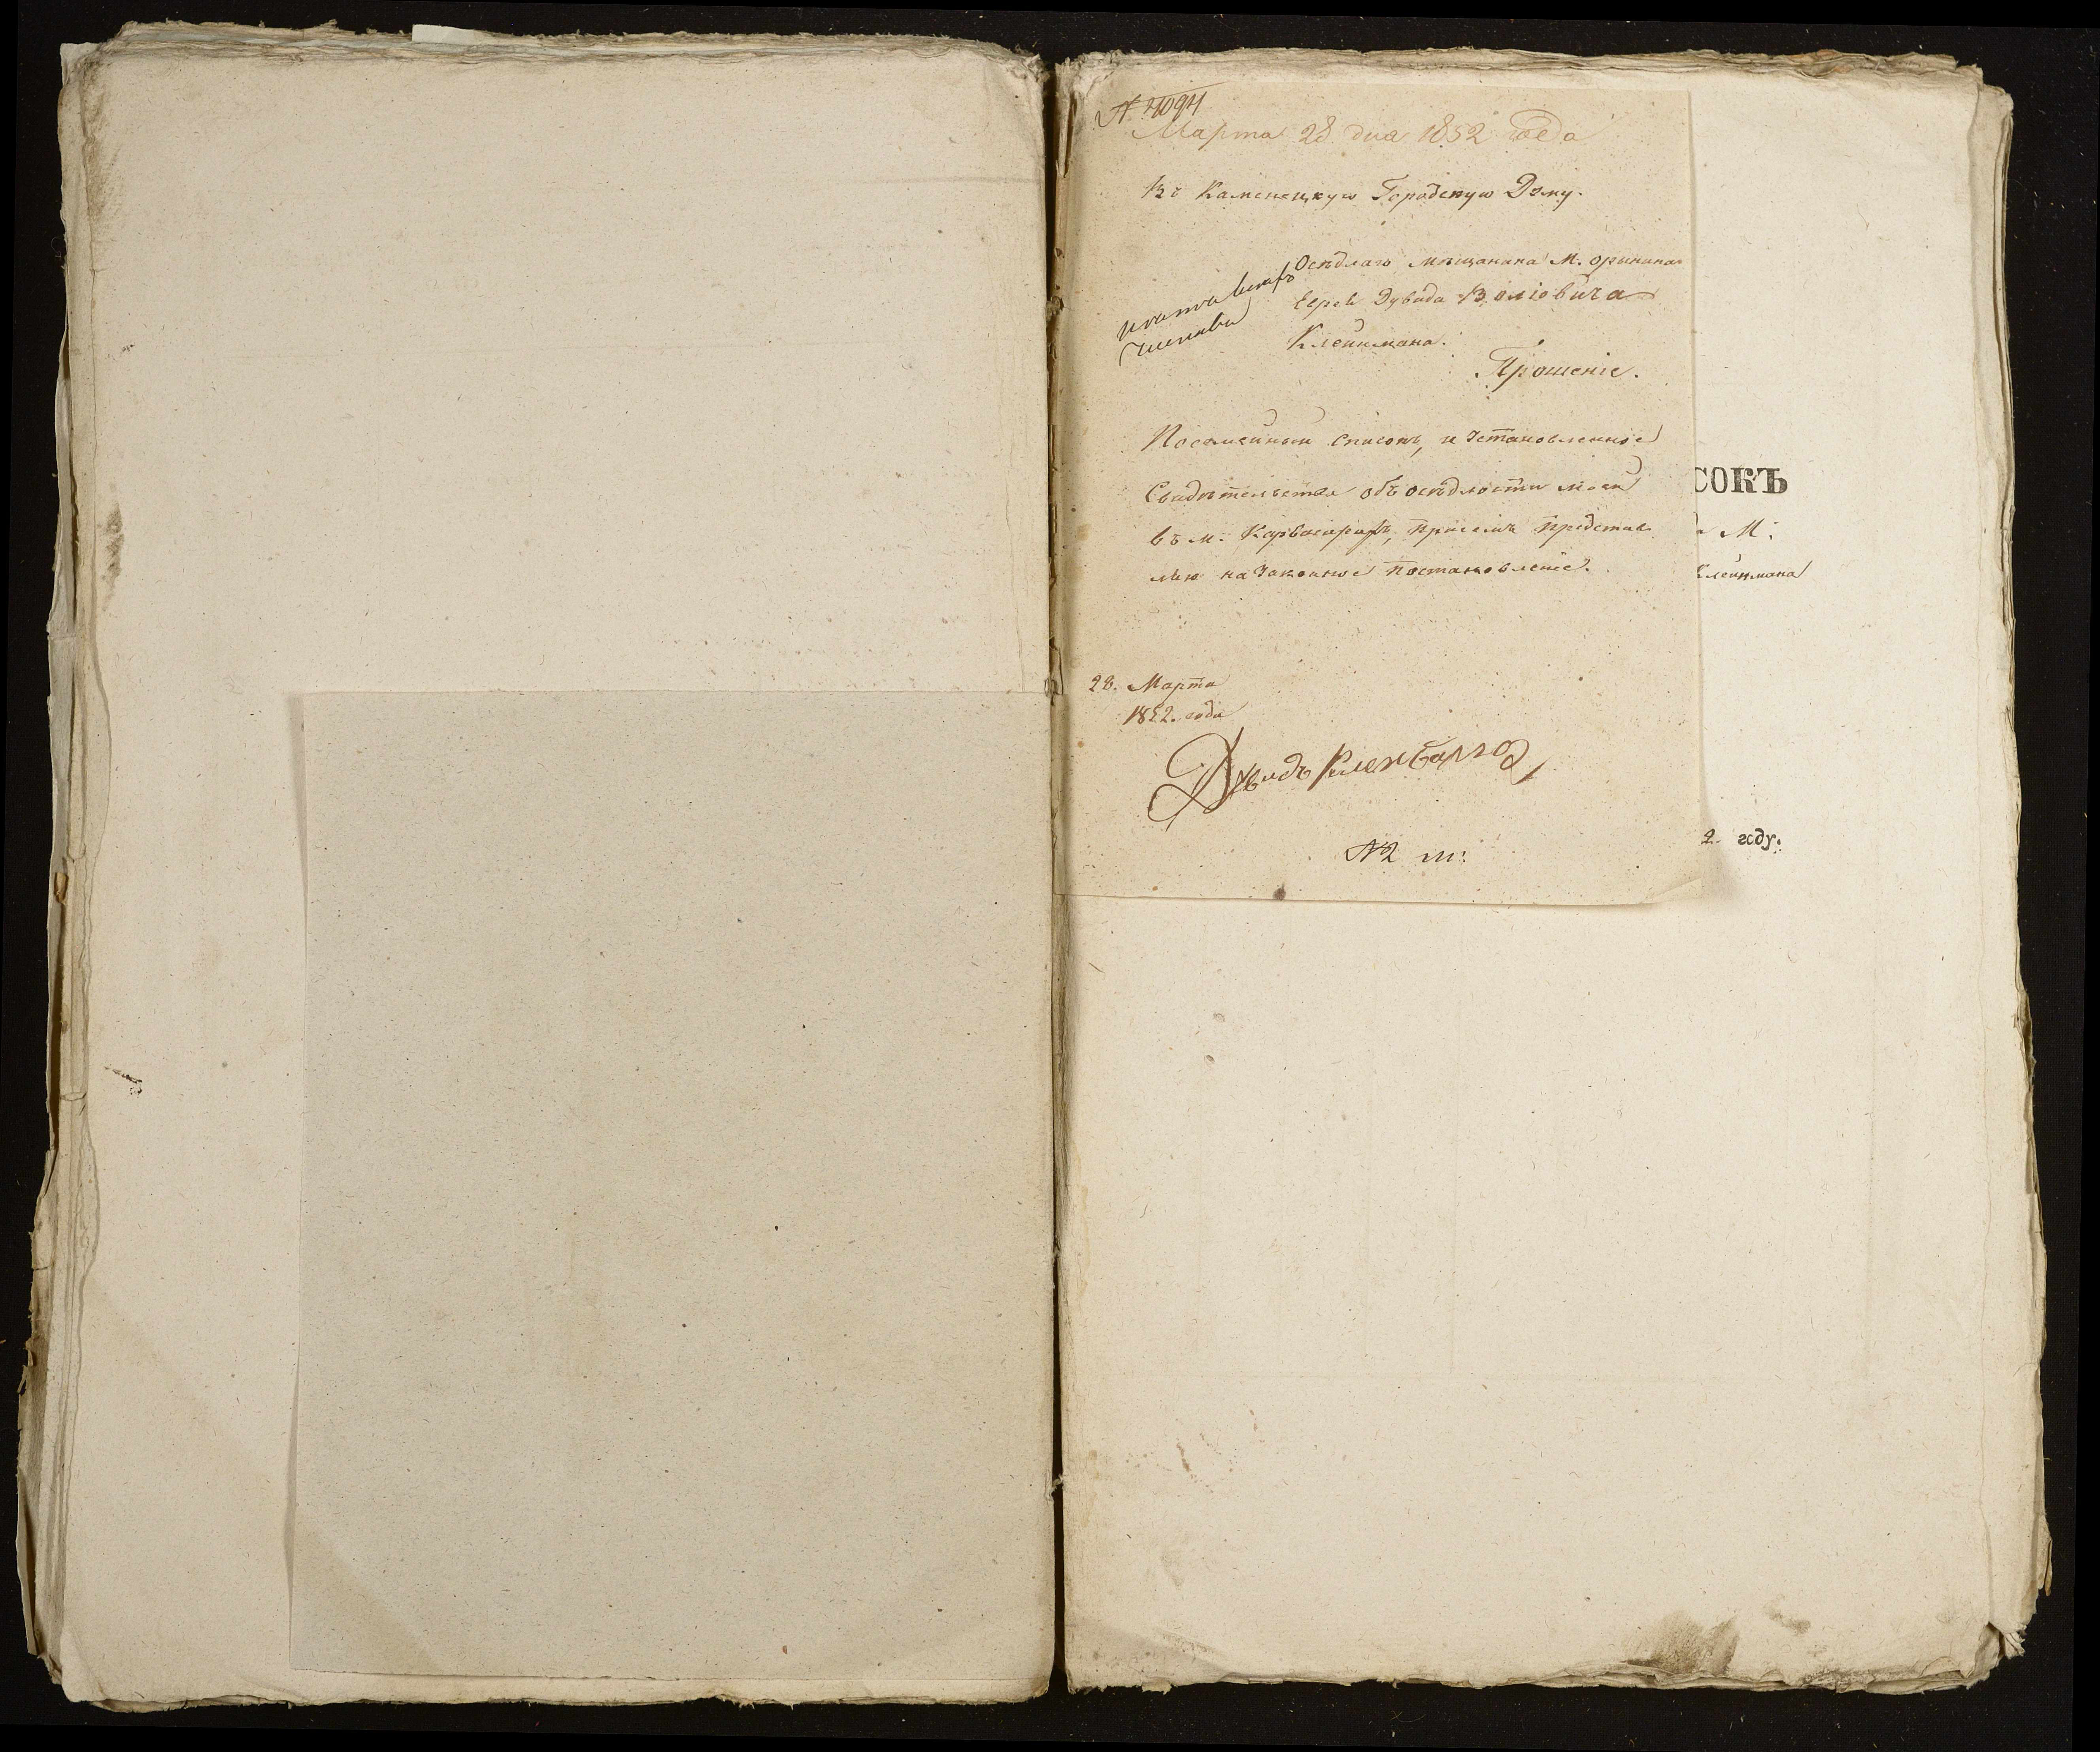 № 4094
Марта 28 дня 1852 года
Въ Каменецкую Городскую Думу.
Осѣдлаго мѣщанина М. Орынина
Еврея Дувида Волковича
Клейнмана.
Прошеніе.
Посемейный списокъ, и установленное
Свидѣтельство объ осѣдлости моей
въ м. Карвасарахъ, присемъ представ
ляю на законное постановленіе.
28. Марта
1852. года
Дувидъ
№ 2 м:
СОКЪ
М:
Клейнмана
2. году.